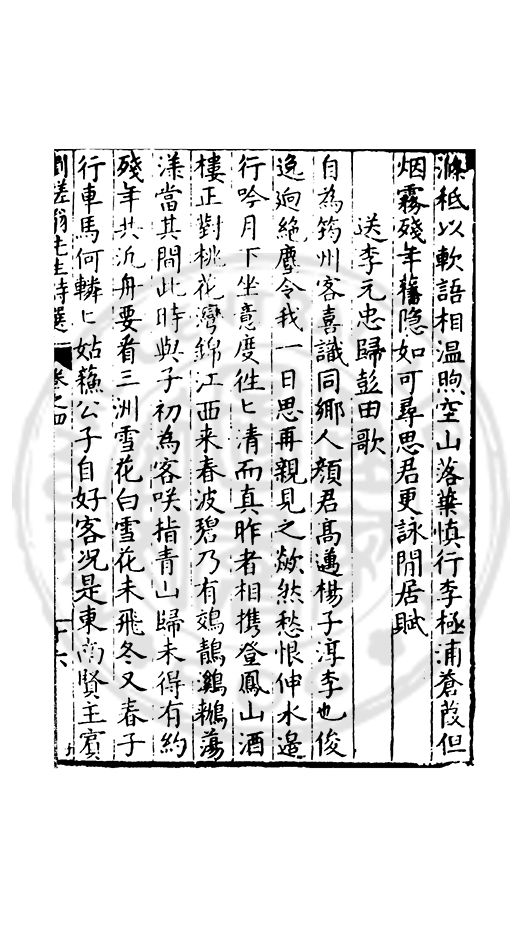 滌秪以軟語相温煦空山落葉慎行李極浦蒼葭但
烟霧殘年舊隐如可尋思君更詠閒居賦
送李元忠歸彭田歌
自為筠州客喜識同鄉人顏君髙邁楊子淳李也俊
逸迥絶塵令我一日思再親見之歘然愁恨伸水邉
行吟月下坐意度徃匕清而真昨者相携登鳳山酒
樓正對桃花灣錦江西来春波碧乃有鵁鶄鸂鶒蕩
漾當其間此時與子初為客咲指青山歸未得有約
殘年共沉舟要看三洲雪花白雪花未飛冬又春子
行車馬何轔匕姑蘓公子自好客况是東南賢主賔
劉槎翁先生詩選 卷之四 二十六